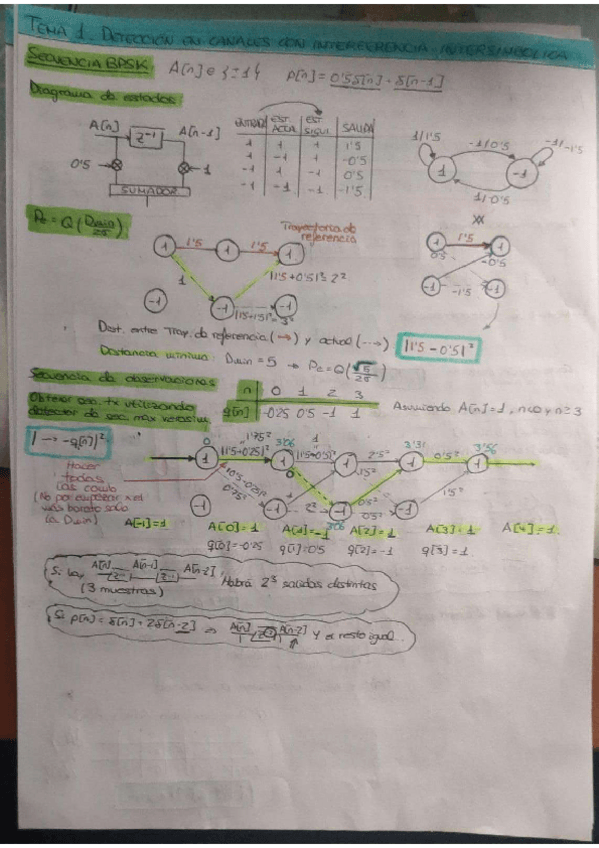 TEMA 1. DETECCIÓN EN CANALES CON INTERFERENCIA INTERSIMBÓLICA
SECUENCIA BPSK A[n] ∈ {±1} p[n] = 0'5δ[n] + δ[n-1]
Diagrama de estados:
A[n] z⁻¹ A[n-1]
0'5 1
SUMADOR
ENTRADA EST. ACTUA. EST. SIGUI. SALIDA
1 1 1 1'5
1 -1 1 -0'5
-1 1 -1 0'5
-1 -1 -1 -1'5
1/1'5 -1/0'5 -1/-1'5
1 -1
1/-0'5
Pe = Q(Dmin/2σ)
Trayectoria de referencia
1 1'5 1 1'5 1
1 |1'5+0'5|² = 2²
-1 -1 -1
|1'5+1'5|² = 3²
1 1'5 1
0'5 -0'5
-1 -1'5 -1
Dist. entre Tray. de referencia (→) y actual (--→) |1'5 - 0'5|²
Distancia mínima: Dmin = 5 → Pe = Q(√5/2σ)
Secuencia de observaciones
Obtener sec. tx utilizando detector de sec. máx verosim.
n 0 1 2 3
q[n] -0'25 0'5 -1 1
Asumiendo A[n]=1, n<0 y n≥3
| → -q[n]|²
Hacer todas las comb
(No por empezar x el más barato sale la Dmin)
0 1'75² 3'06 1 3'31 3'56
1 |1'5+0'25|² 1 |1'5-0'5|² 1 2'5² 1 0'5² 1
0'75² 0 1'5² 1'5²
-1 -1 2² -1 0'5² -1
3'06
A[-1]=1 A[0]=1 A[1]=-1 A[2]=1 A[3]=1 A[4]=1
q[0]=-0'25 q[1]=0'5 q[2]=-1 q[3]=1
Si hay A[n] A[n-1] A[n-2], Habrá 2³ salidas distintas
z⁻¹ z⁻¹
(3 muestras)
Si p[n] = δ[n] + 2δ[n-2] A[n] A[n-2] y el resto igual